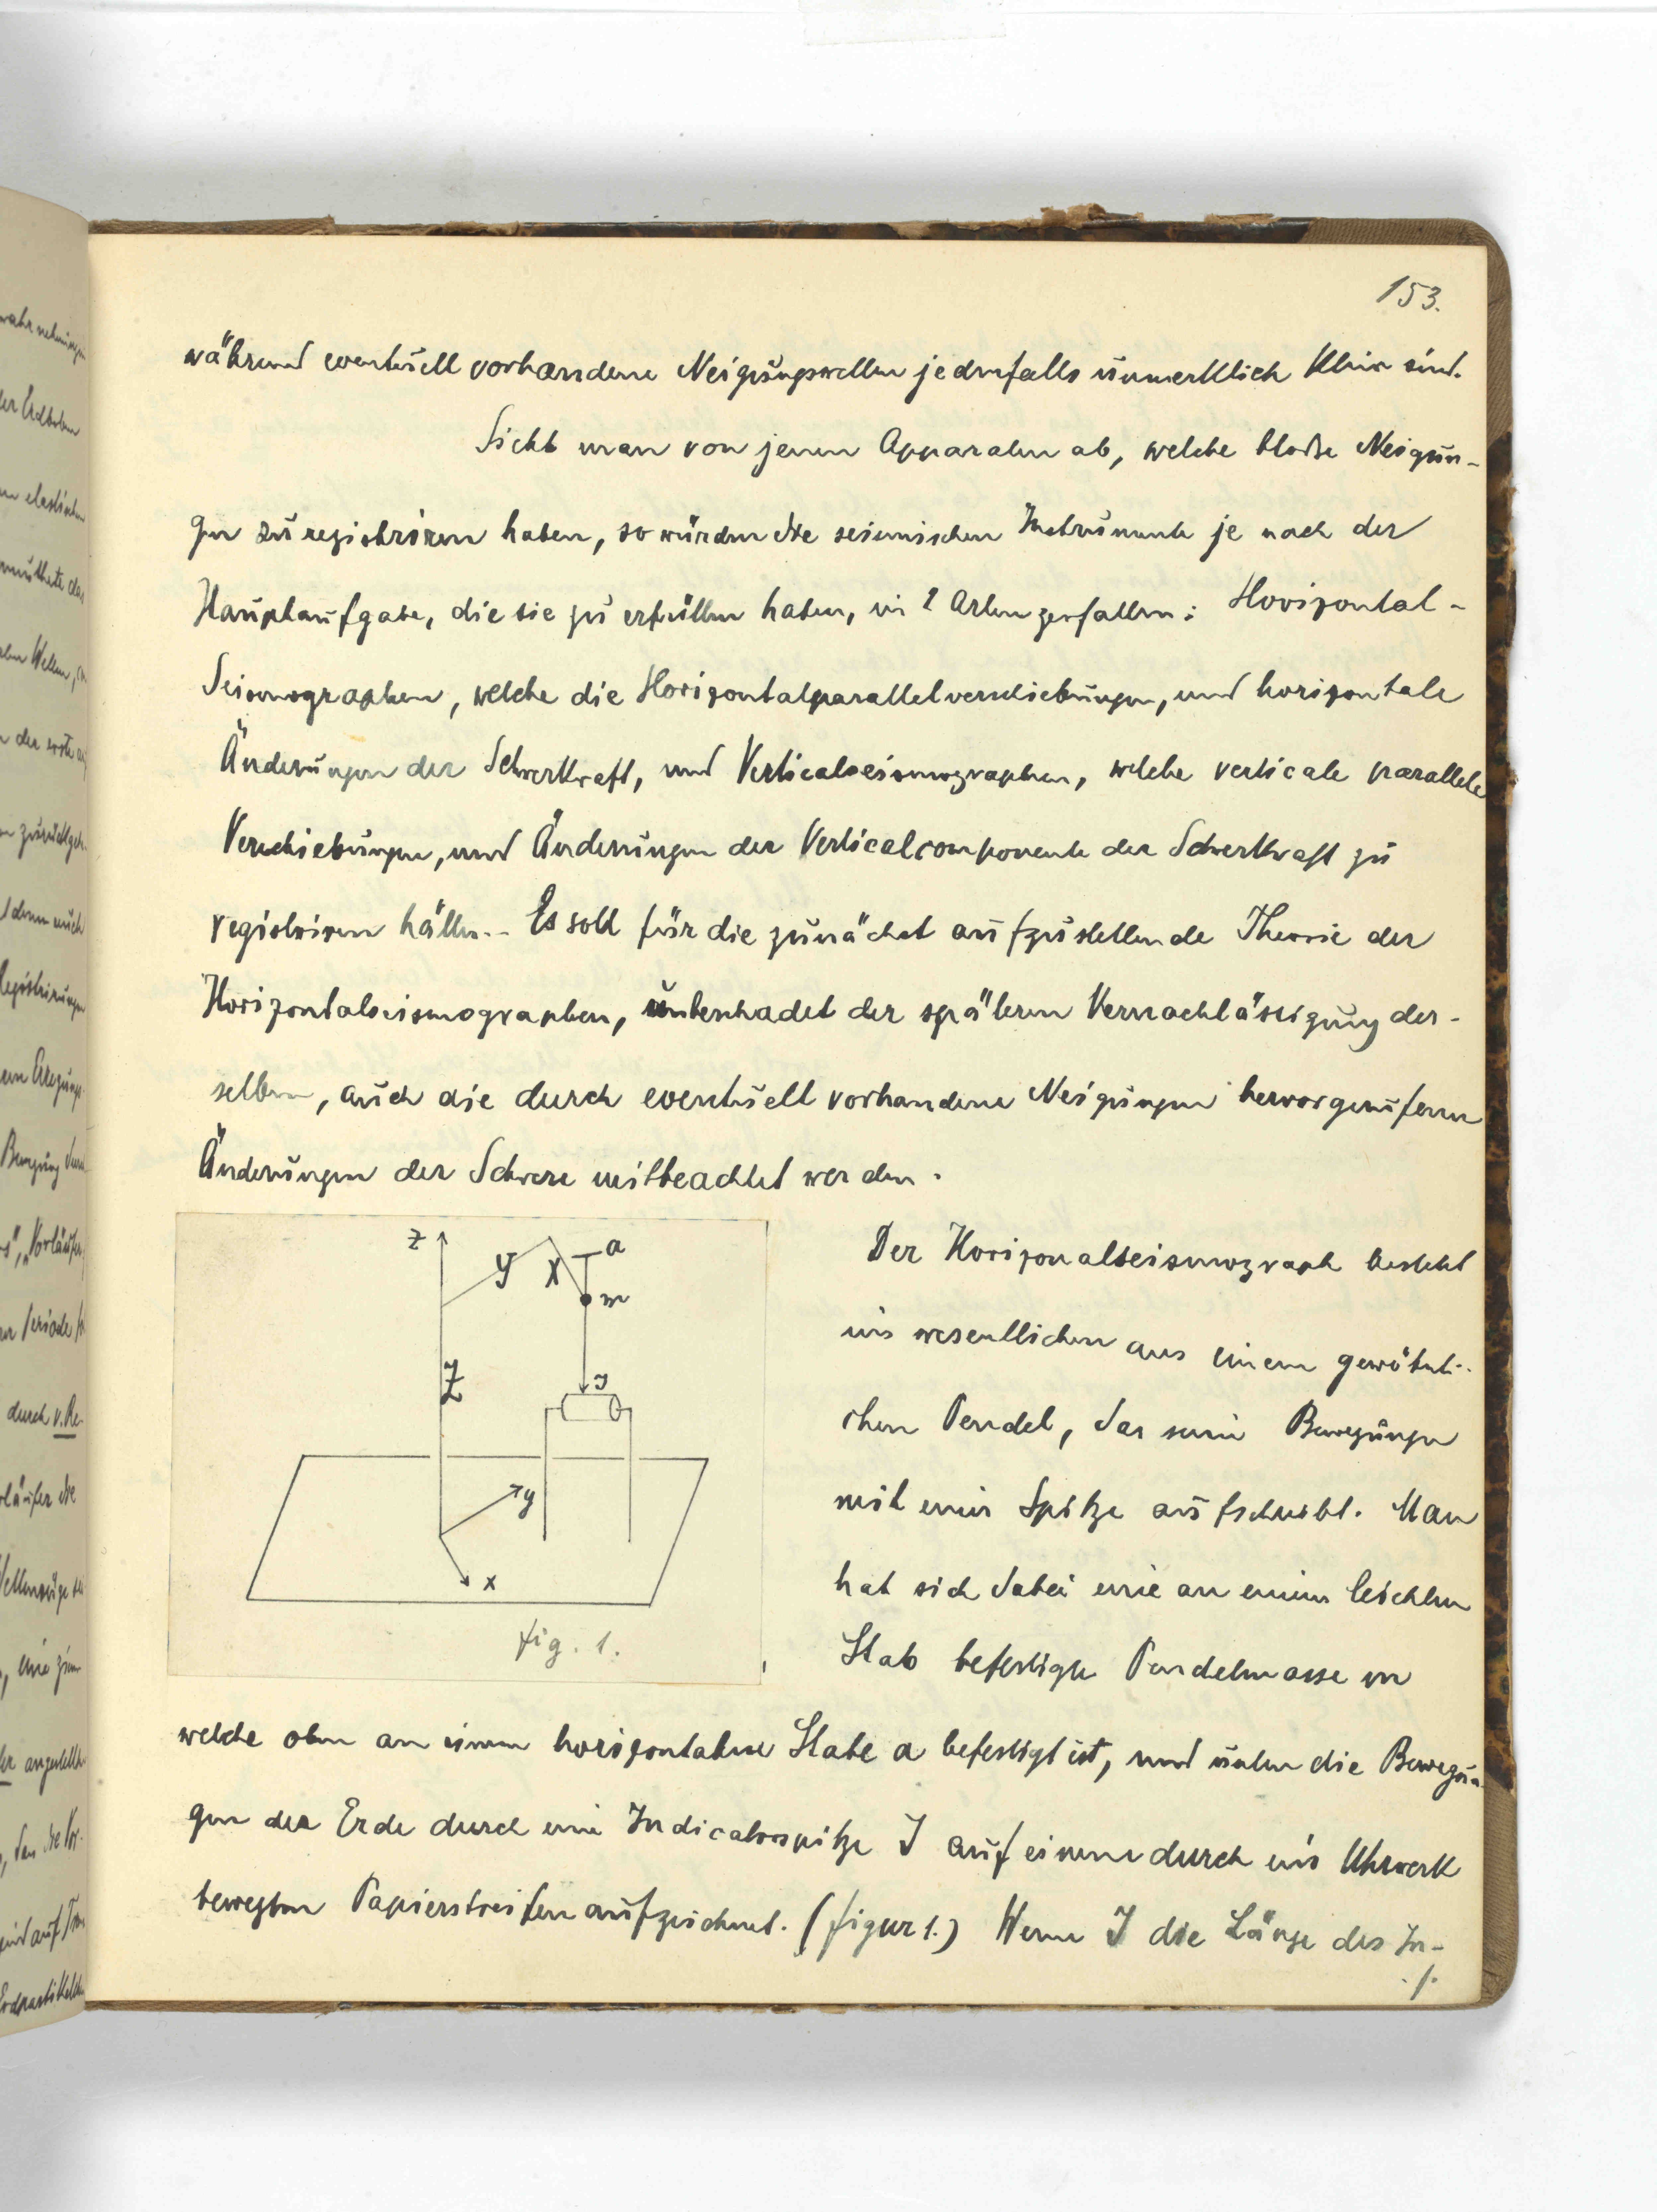 153.
während eventuell vorhandene Neigungswellen jedenfalls unmerklich klein sind.
Sieht man von jenen Apparaten ab, welche bloße Neigun-
gen zu registriren haben, so würden die seismischen Instrumente je nach der
Hauptaufgabe, die sie zu erfüllen haben, in 2 Arten zerfallen: Horizontal-
Seismographen, welche die Horizontalparallelverschiebungen, und horizontale
Änderungen der Schwerkraft, und Verticalseismographen, welche verticale parallele
Verschiebungen, und Änderungen der Verticalcomponente der Schwerkraft zu
registriren hätten. Es soll für die zunächst aufzustellende Theorie der
Horizontalseismographen, unbeschadet der spätern Vernachlässigung der-
selben, auch die durch eventuell vorhandene Neigungen hervorgerufenen
Änderungen der Schwere mitbeachtet werden.
z
y
X
a
m
Z
J
y
x
fig. 1.
Der Horizonalseismograph besteht
im wesentlichen aus einem gewöhnli-
chen Pendel, das seine Bewegungen
mit einer Spitze aufschreibt. Man
hat sich dabei eine an einem leichten
Stab befestigte Pendelmasse m
welche oben an einem horizontalen Stabe a befestigt ist, und unten die Bewegun-
gen der Erde durch eine Indicatorspitze J auf einem durch ein Uhrwerk
bewegten Papierstreifen aufzeichnet. (figur 1.) Wenn J die Länge des In-
./.